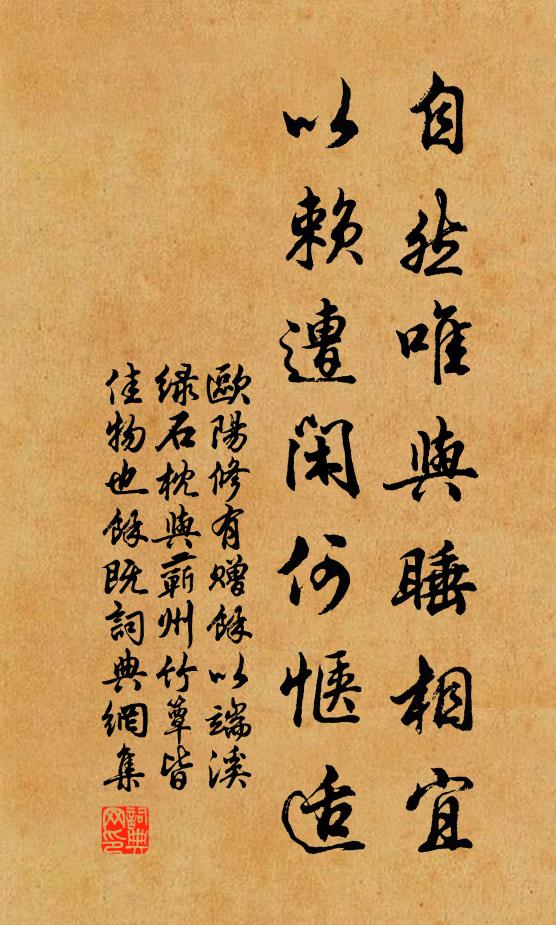 自然唯與睡相宜
以賴遭閑何惬适
歐陽修有贈餘以端溪
緑石枕與蘄州竹簟皆
佳物也餘既詞典網集
詞典网印